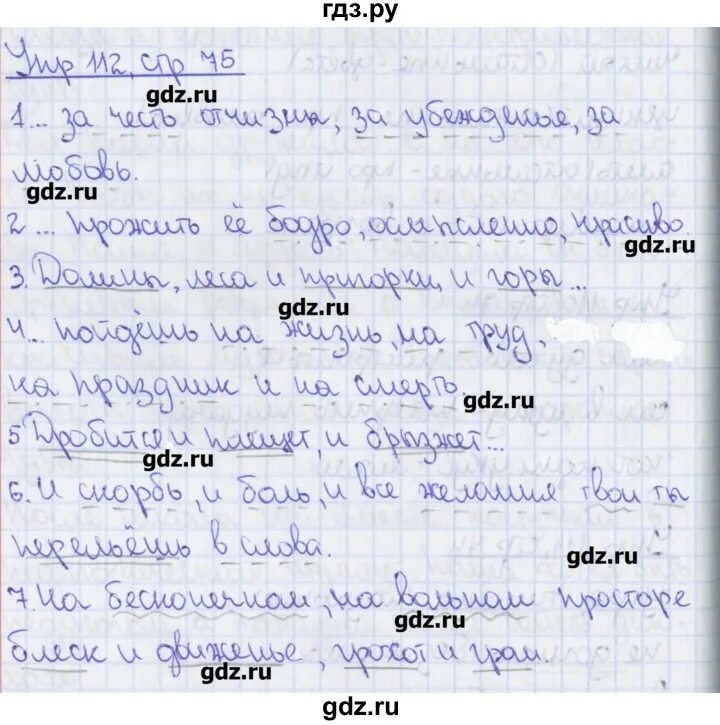 гдз.ру
Упр 112, стр 75
gdz.ru
1... за честь отчизны, за убежденье, за
любовь.
gdz.ru
2... прожить её бодро, осмысленно, красиво.
gdz.ru
3. Долины, леса и пригорки, и горы...
gdz.ru
4... пойдёшь на жизнь, на труд,
на праздник и на смерть.
gdz.ru
5 Дробится и плещет, и брызжет...
gdz.ru
6. И скорбь, и боль, и все желания твои ты
перельёшь в слова.
gdz.ru
7. На бесконечном, на вольном просторе
gdz.ru
блеск и движенье, грохот и гром.
gdz.ru
gdz.ru